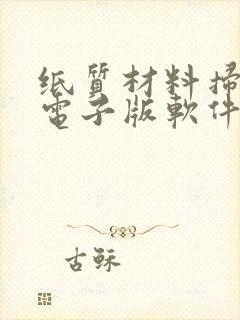 纸質材料掃
電子版軟件
古稣